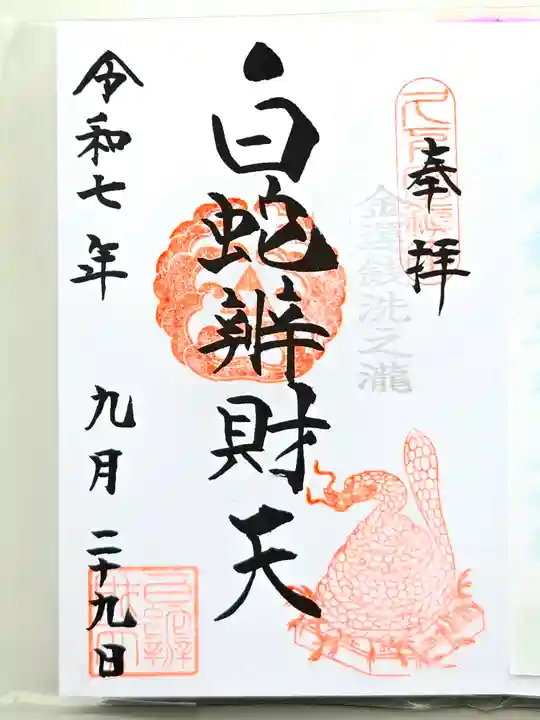 奉拝
金運銭洗之瀧
白蛇辨財天
令和七年 九月 二十九日